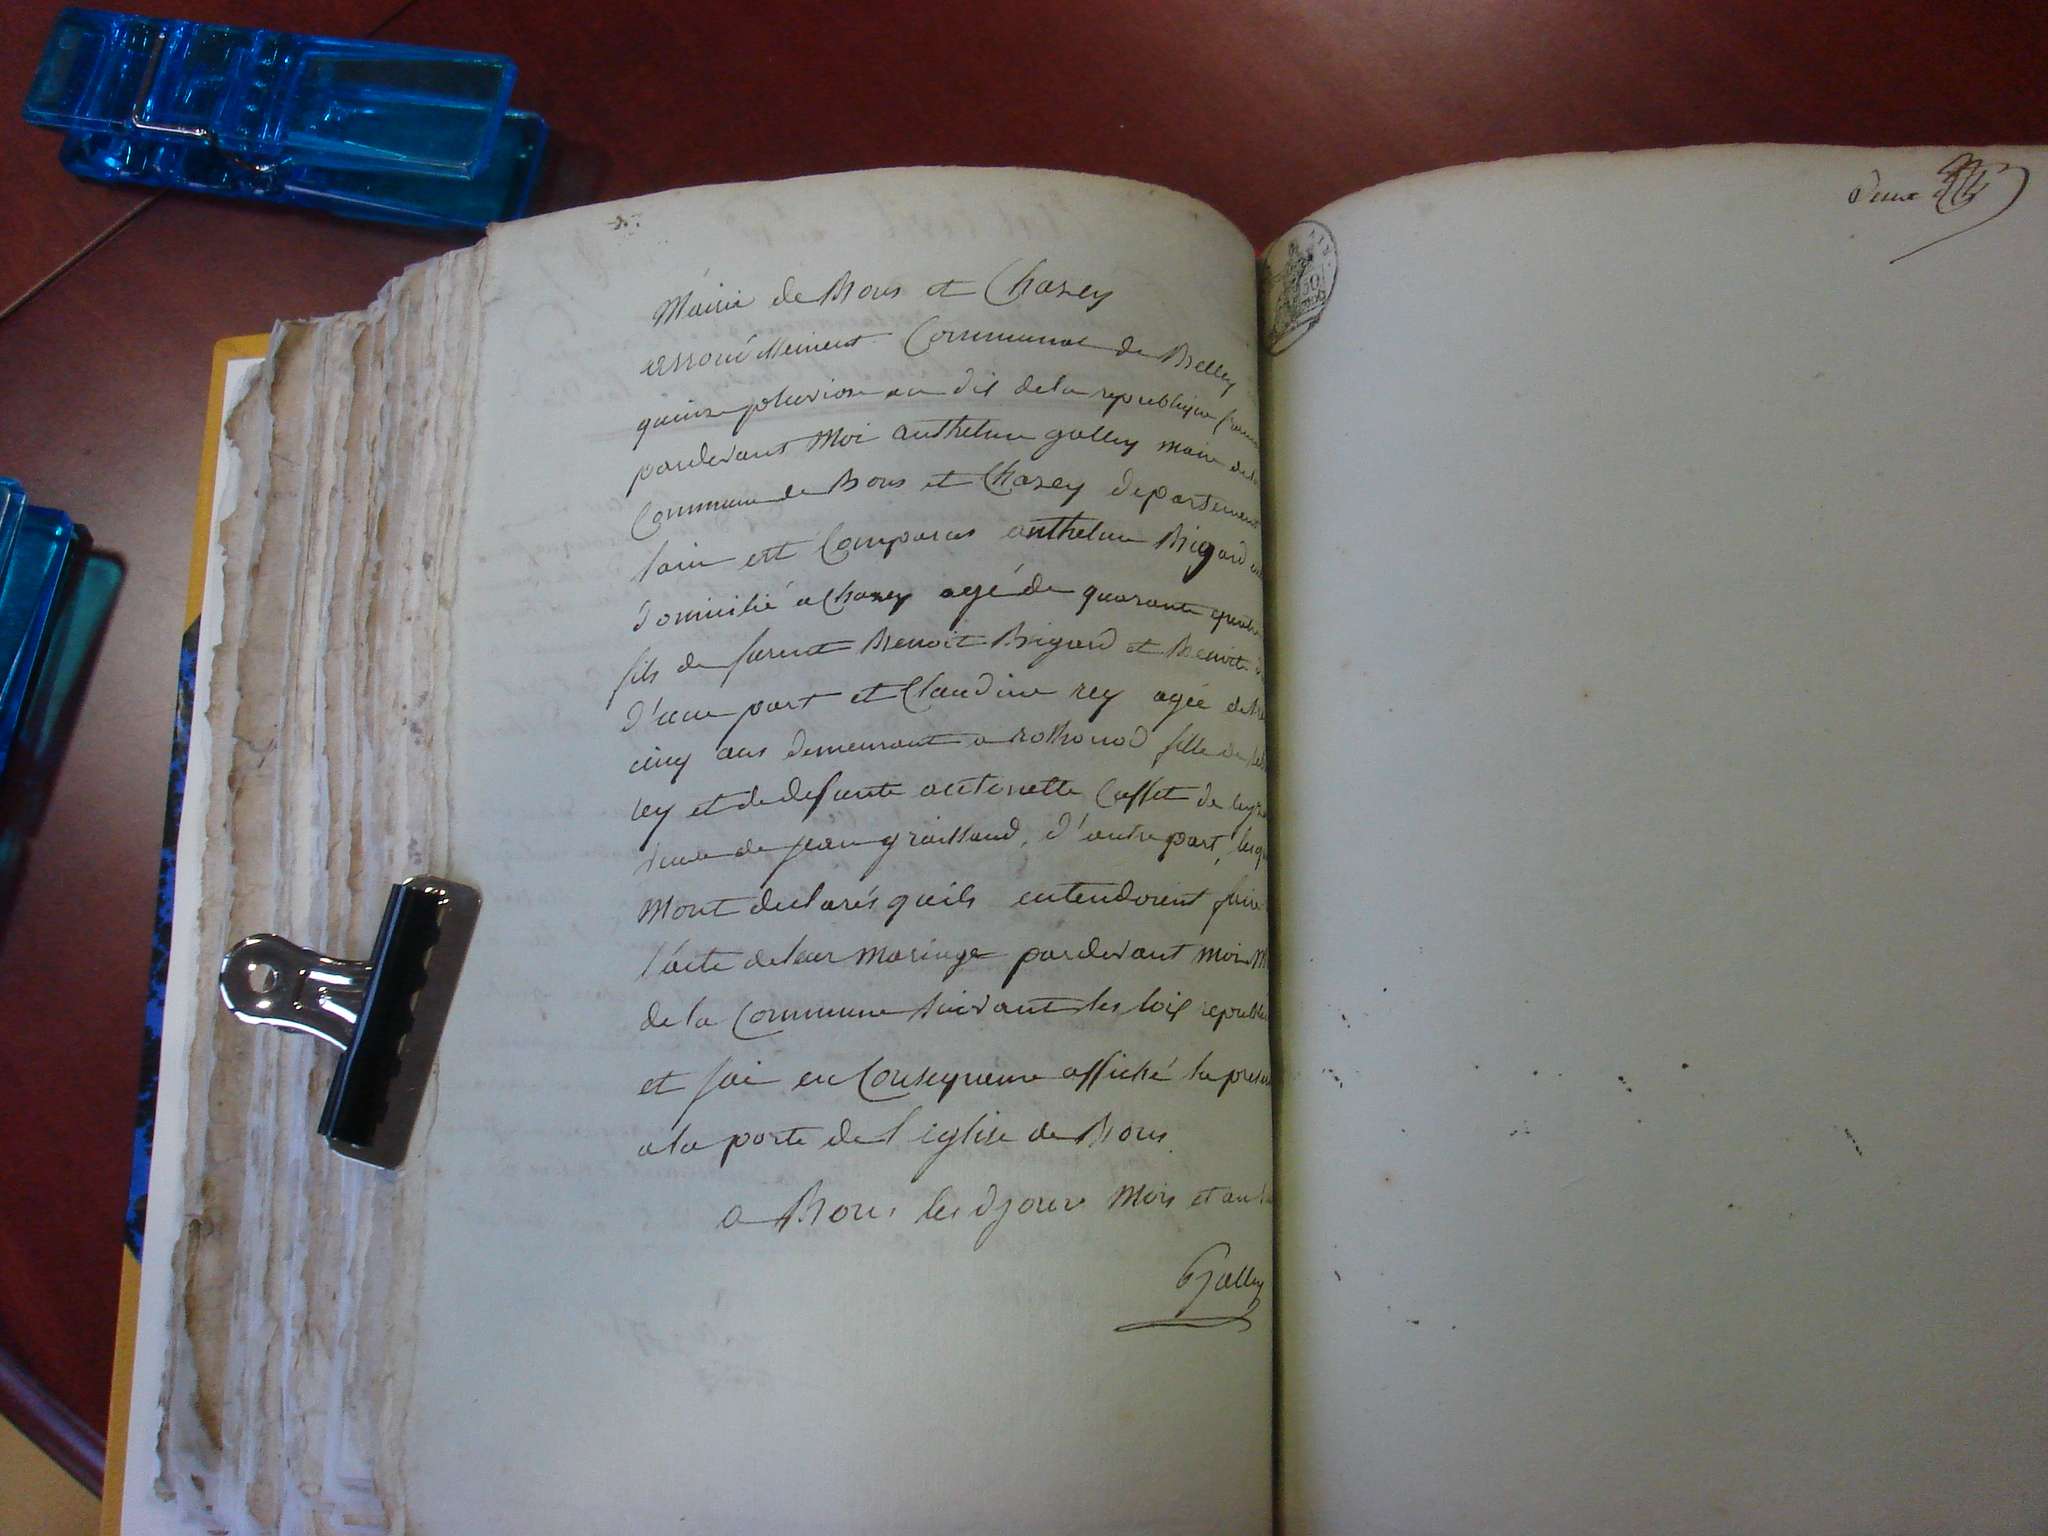 Mairie de Bons et Chazey
arrondissement Communal de Belley
quinze pluviose an dix de la republique
pardevant Moi anthelme gallley maire de la
Commune de Bons et Chazey departement
lain est Comparus anthelme Bigard
domicilié a Chazey agé de quarante quatre
fils de furent Benoit Bigard et Benoite
d'une part et Claudine rey agée de
cinq ans demeurant a rothonod fille de
rey et de defunte antoinette Casset de
veuve de jean graisland, d'autre part,
Mont declarés quils entendoient faire
l'acte de leur Mariage pardevant moi
de la Commune suivant les loix
et jai en Consequence affiché la
a la porte de l'eglise de Bons
a Bons les d jour Mois et an
Galley
deux